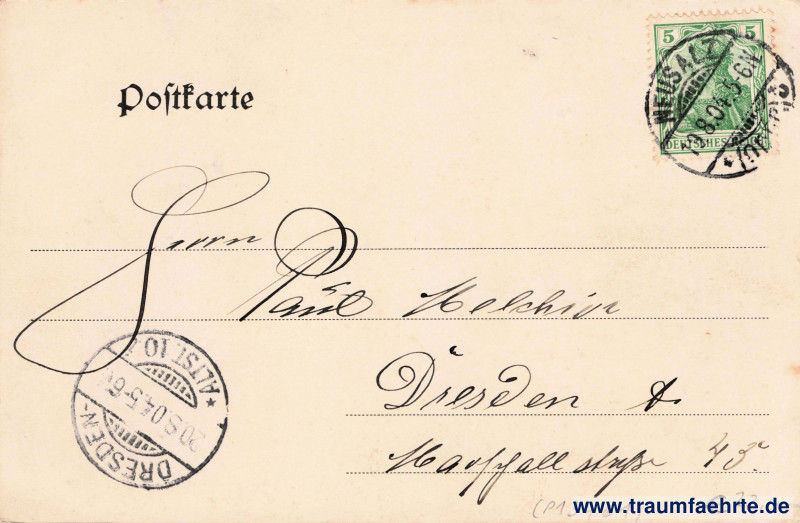 Postkarte
5 5
DEUTSCHES
NEUSALZ
19.8.04.5-6N
Herrn
Paul Melchior
Dresden A.
Marschallstraße 43.
DRESDEN-
20.8.04.5-6V
* ALTST. 10 *
www.traumfaehrte.de